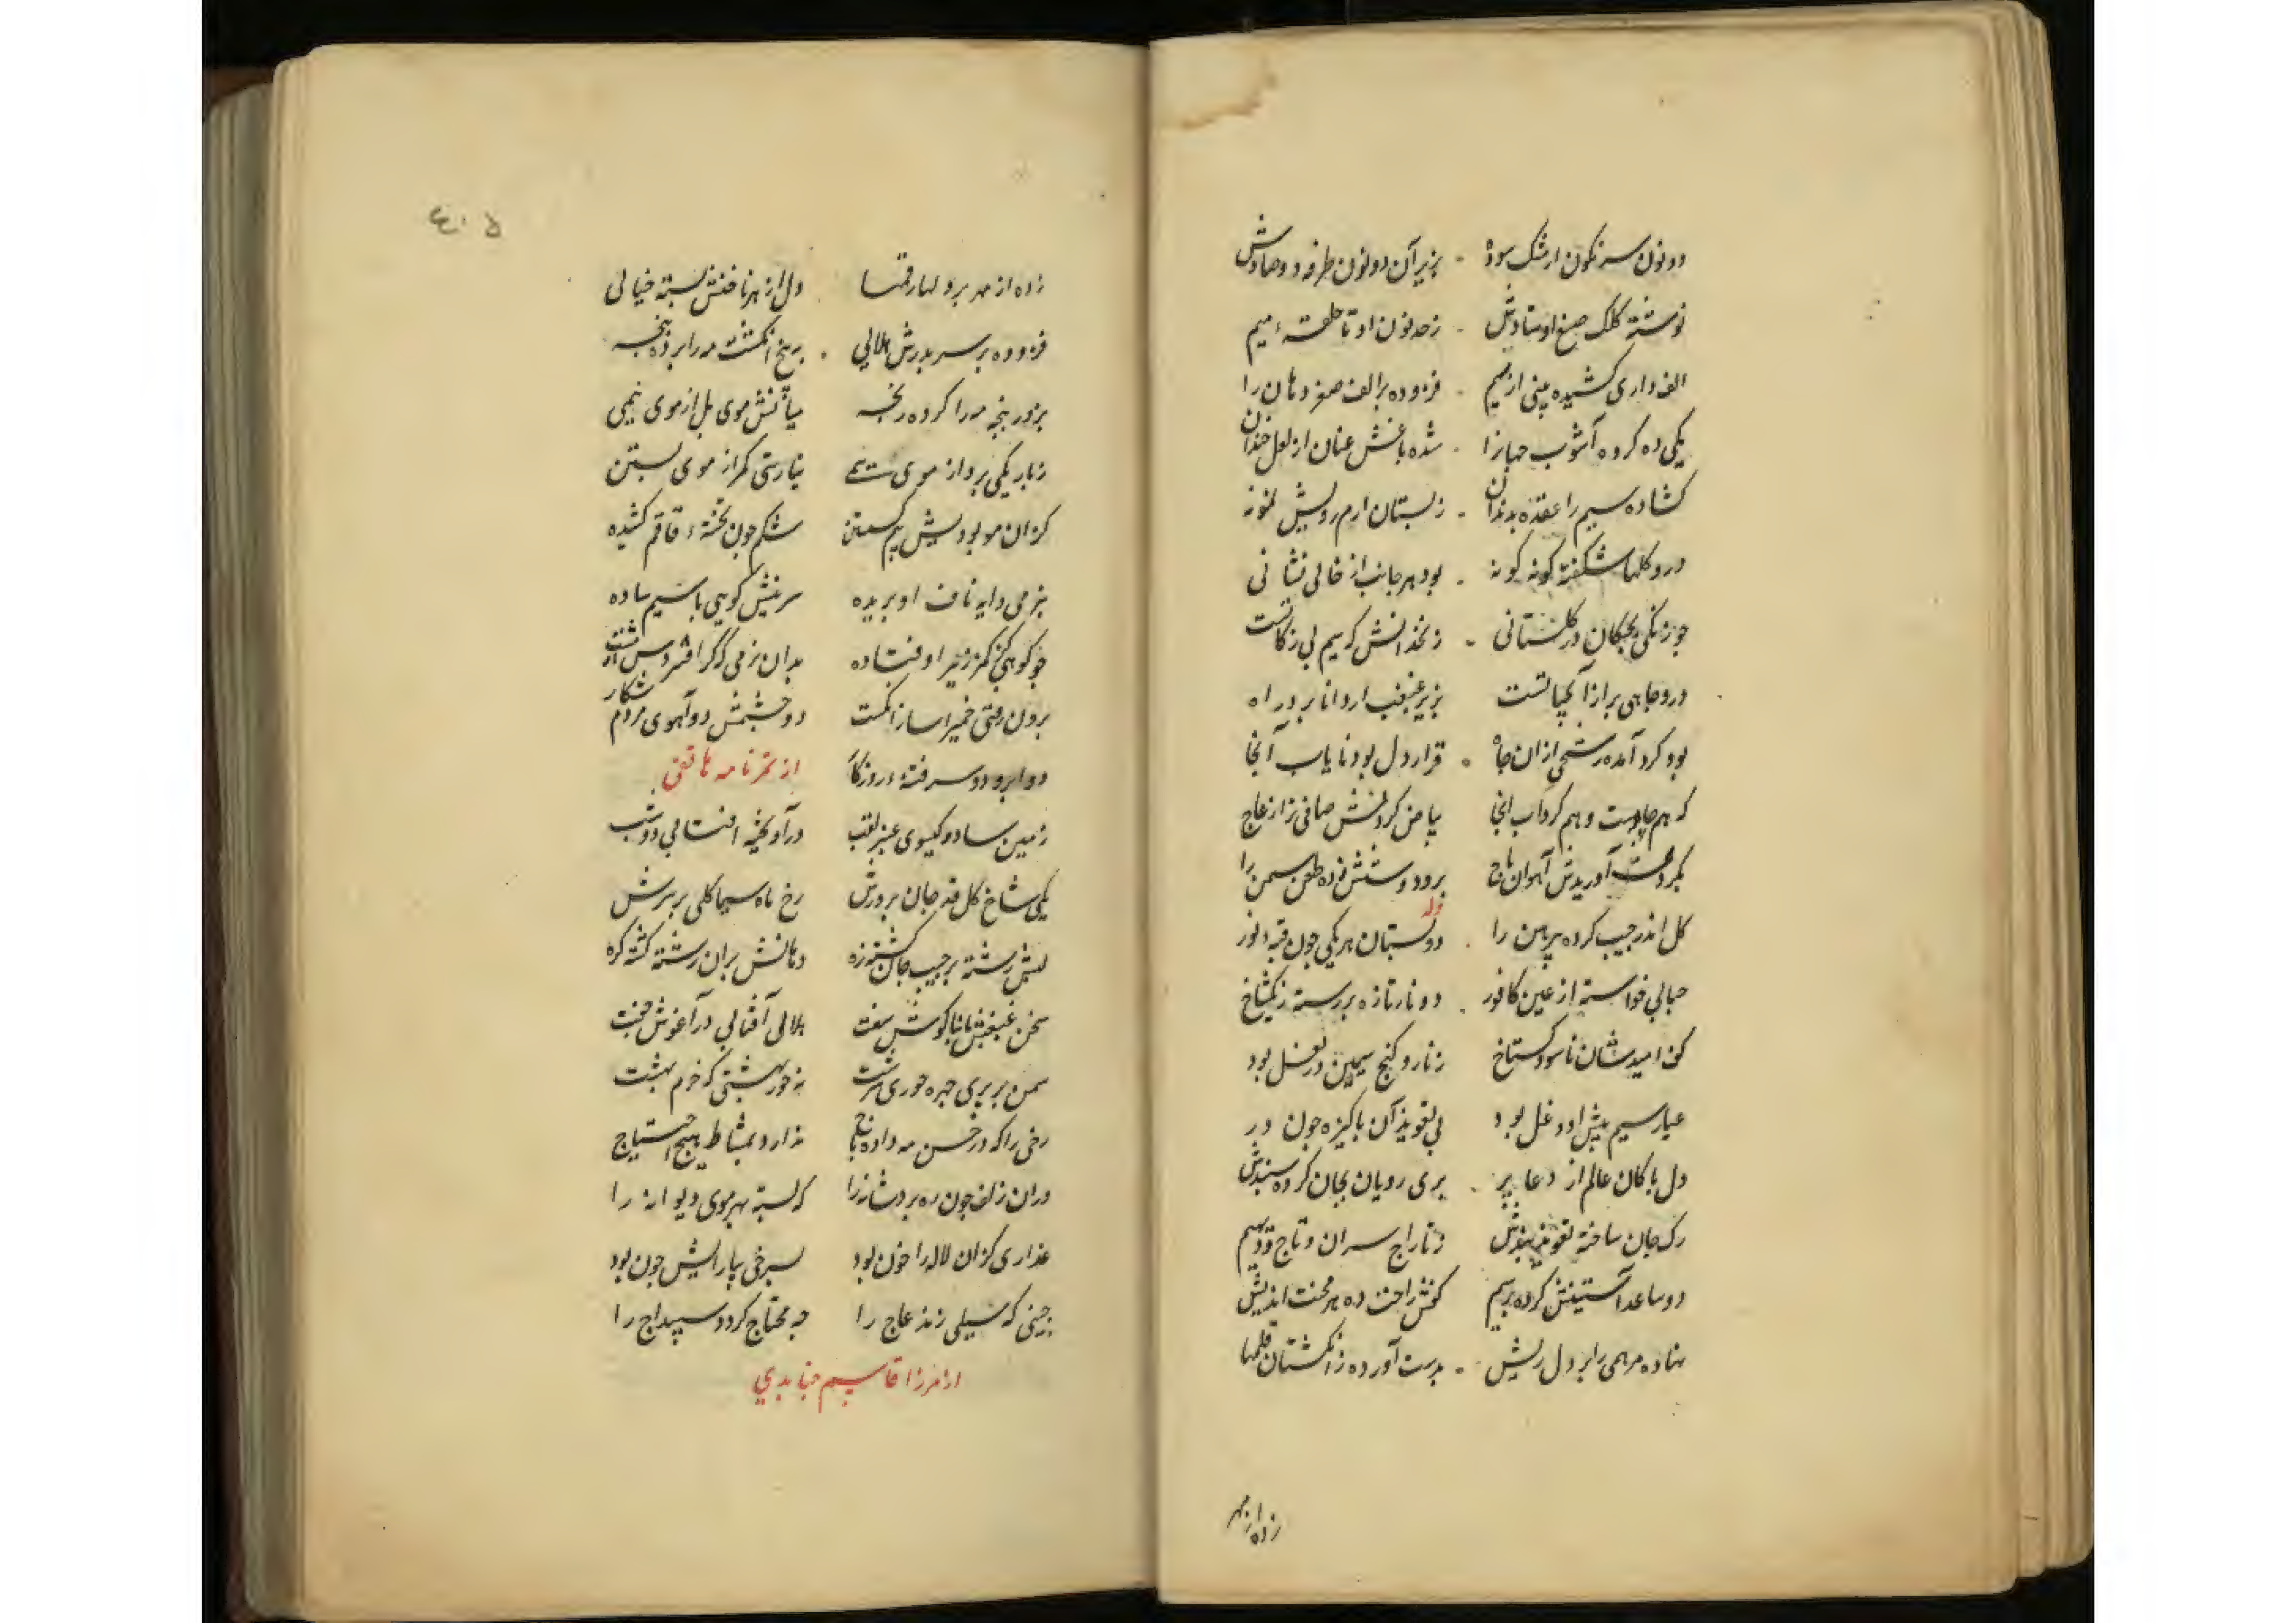 دو نون سرنکون از مشک سوده - بزیر آن دو نون طرفه دو صادش
نوشته کلک صنع اوستادش - ز حد نون او تا حلقهٔ میم
الف واری کشیده بینی از سیم - فزوده بر الف صفر دهان را
یکی ده کرده آشوب جهانرا - شده باغش عنان از لعل خندان
کشاده سیم را عقده بدندان - ز بستان ارم رویش نمونه
درو کلها شکفته کونه کونه - بود هر جانب از خالی نشانی
چو زنکی بچکان در کلستانی - زنخدانش که سیم بی زکاتست
درو چاهی پر از آب حیاتست بزیر غبغب ار دانا برد راه
بود کرد آمده رشحی از آن چاه - قرار دل بود نایاب آنجا
که هم چاهست و هم کرداب آنجا بیاض کردنش صافی تر از عاج
بکردن آوریدش آهوان باج برو دوشش زده طعن سمن را
کل اندر جیب کرده پیرهن را - دو پستان هر یکی چون قبهٔ نور
حبابی خواسته از عین کافور - دو نار تازه بر رسته ز یکشاخ
کف امیدشان نا سوده کستاخ ز بازو کنج سیمین در بغل بود
عیار سیم پیش او دغل بود پی تعویذ آن پاکیزه چون در
دل پاکان عالم از دعا پر - پری رویان بجان کرده سپندش
رک جان ساخته تعویذ بندش ز تاراج سران و تاج و دیهیم
دو ساعد آستینش کرده پر سیم کفش راحت ده هر محنت اندیش
نهاده مرهمی را بر دل ریش - بدست آورده ز انکشتان قلمها
زده از مهر
٤٠٥
زده از مهر بر دلها رقمها دل از هر ناخنش بسته خیالی
فزوده بر سر بدرش هلالی - به پنج انکشت مه را برده پنجه
بزور پنجه مه را کرده رنجه میانش موی بل از موی نیمی
ز باریکی برو از موی بیمی نیارستی کمر از موی بستن
کزان مو بودیش بیم کسستن شکم چون تختهٔ قاقم کشیده
بنرمی دایه ناف او بریده سرینش کوهی با سیم ساده
چو کوهی کز کمر زیر اوفتاده بدان نرمی که کر افشردیش مشت
برون رفتی خمیر آسا ز انکشت دو چشمش دو آهوی مردم شکار
دو ابرو دو سر فتنهٔ روزکار از تمرنامه هاتفی
زمین سا دو کیسوی عنبر لقب در آویخته آفتابی دو شب
یکی شاخ کل قد جان پرورش رخ ماه سیما کلی بر سرش
لبش رشته بر جیب جان کشته زه دهانش بران رشته کشته کره
سخن غبغبش با بناکوش سفت هلالی آفتابی در آغوش خفت
سمن بر پری چهره حوری سرشت نه حور بهشتی که خرم بهشت
رخی را که در حسن مه داده باج ندارد بمشاطه هیچ احتیاج
دران زلف چون ره برد شانه را که بسته بهر موی دیوانه را
عذاری کزان لاله را خون بود بسرخی بیارایش چون بود
جبینی که سیلی زند عاج را چه محتاج کردد سپیداج را
از میرزا قاسیم جنابدی